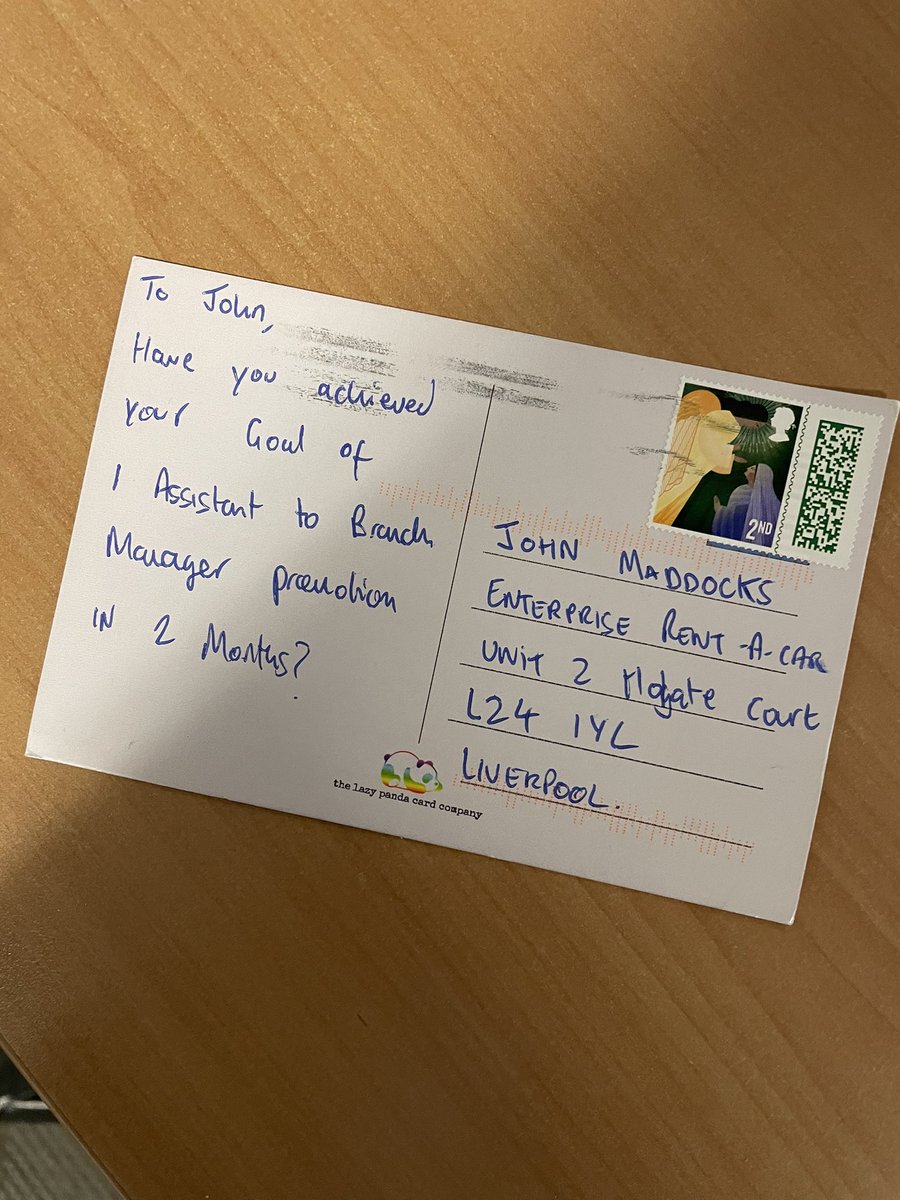 To John,
Have you achieved
your Goal of
1 Assistant to Branch
Manager promotion
in 2 Months?
2ND
JOHN MADDOCKS
ENTERPRISE RENT-A-CAR
UNIT 2 Holgate Court
L24 1YL
LIVERPOOL.
the lazy panda card company